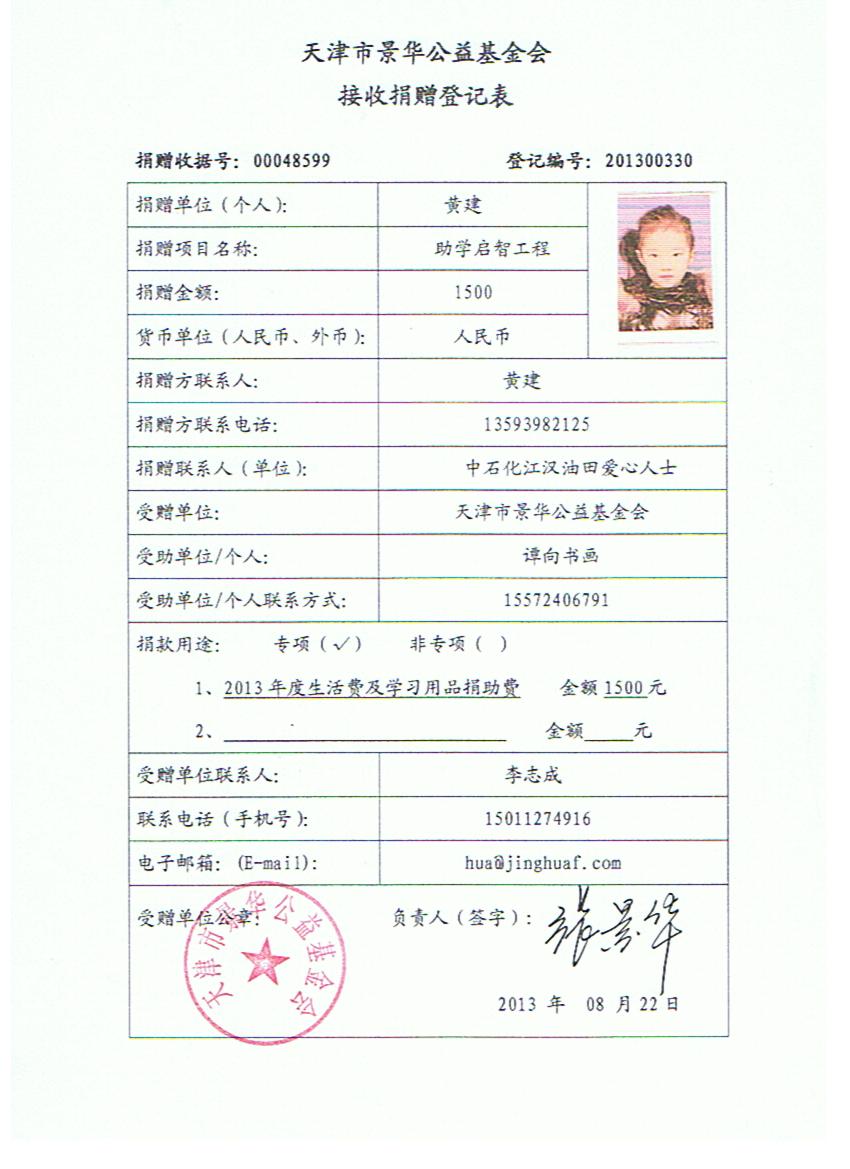 天津市景华公益基金会
接收捐赠登记表
捐赠收据号：00048599 登记编号：201300330
捐赠单位（个人）： 黄建
捐赠项目名称： 助学启智工程
捐赠金额： 1500
货币单位（人民币、外币）： 人民币
捐赠方联系人： 黄建
捐赠方联系电话： 13593982125
捐赠联系人（单位）： 中石化江汉油田爱心人士
受赠单位： 天津市景华公益基金会
受助单位/个人： 谭向书画
受助单位/个人联系方式： 15572406791
捐款用途： 专项（√） 非专项（ ）
1、2013 年度生活费及学习用品捐助费 金额 1500 元
2、 金额 元
受赠单位联系人： 李志成
联系电话（手机号）： 15011274916
电子邮箱：(E-mail)： hua@jinghuaf.com
受赠单位公章： 负责人（签字）： 景华
天津市景华公益基金会
2013 年 08 月 22 日